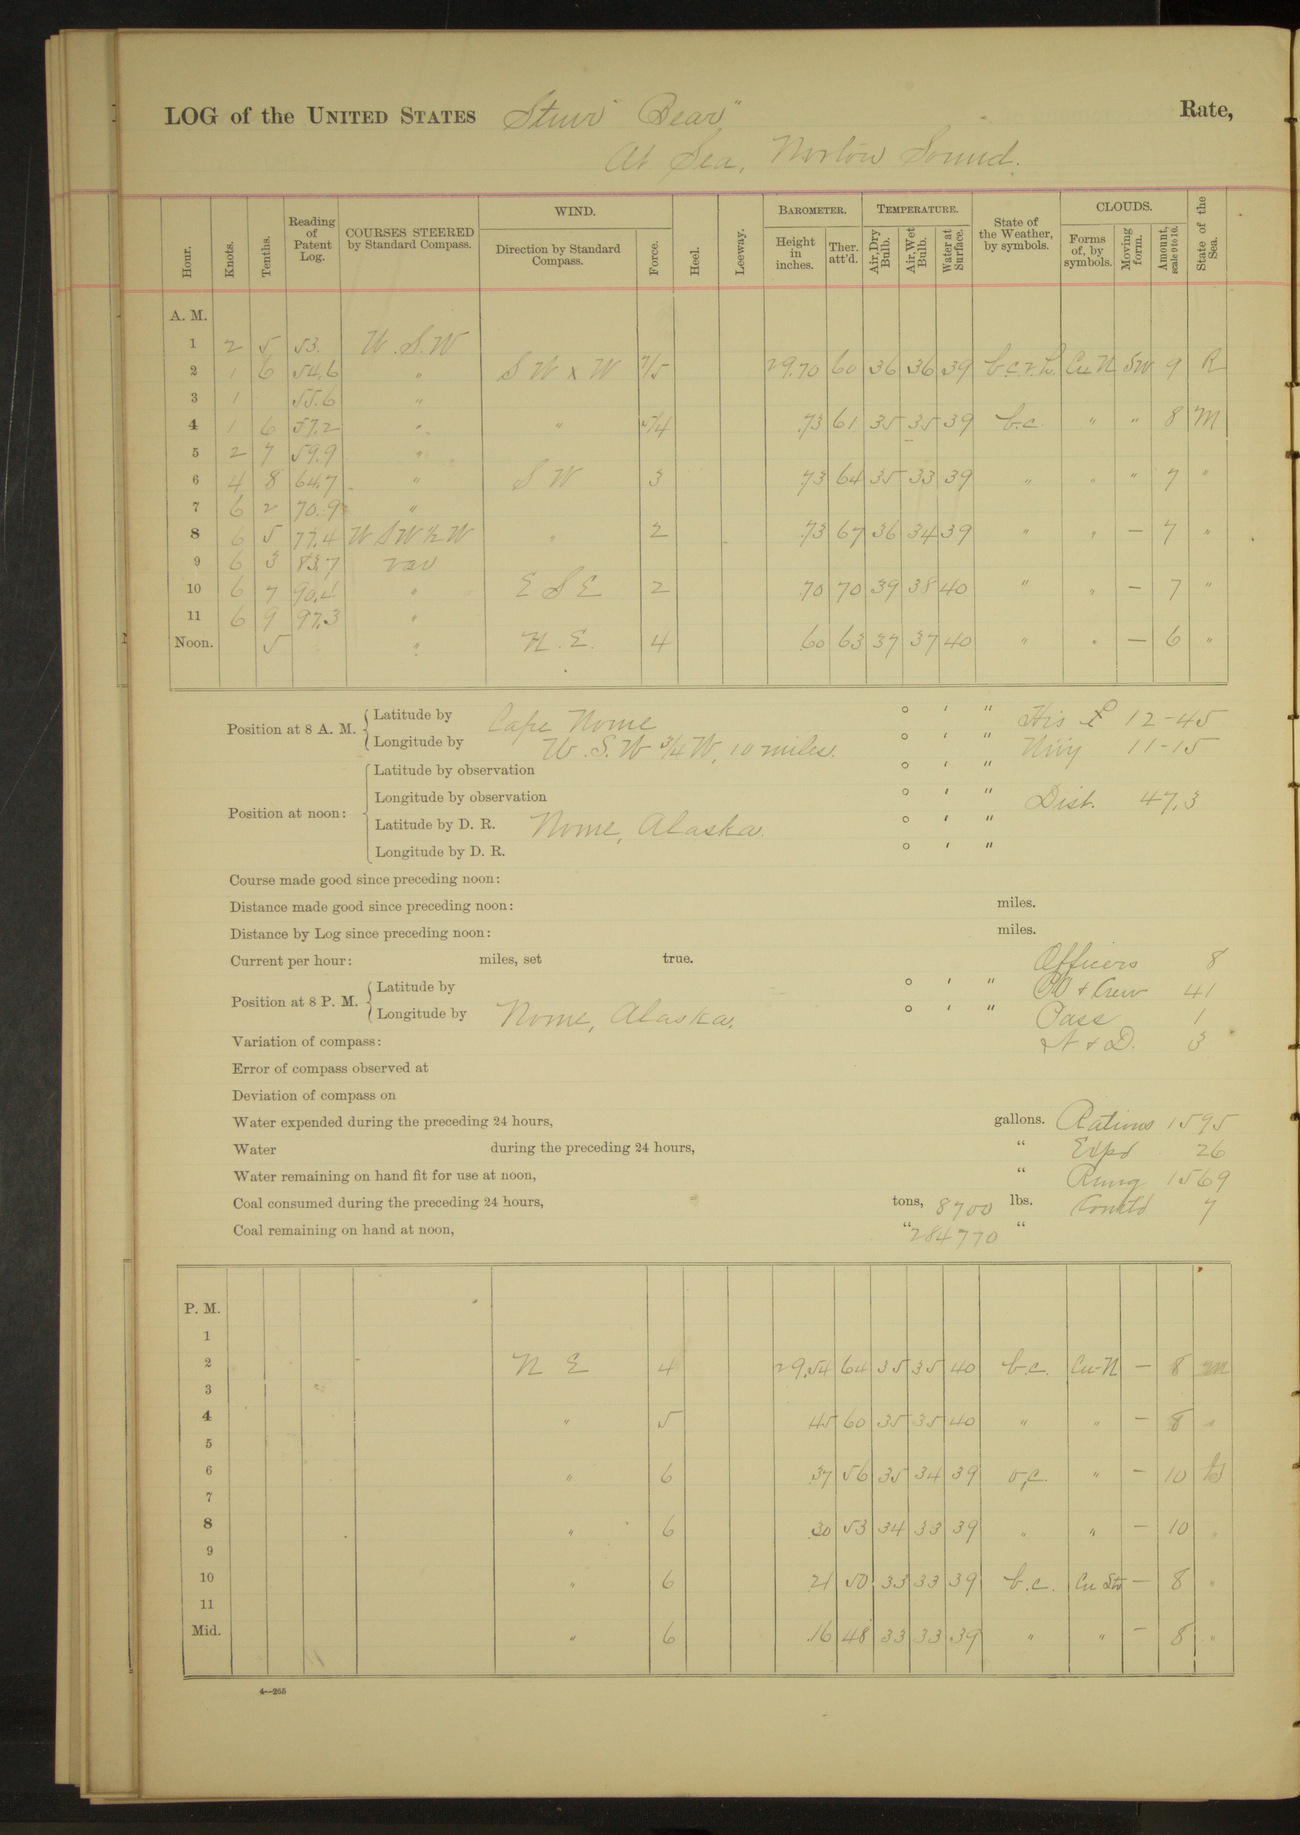 LOG of the UNITED STATES Stmr "Bear" Rate,
At Sea, Norton Sound.
Hour. Knots. Tenths. Reading of Patent Log. COURSES STEERED by Standard Compass. WIND. Direction by Standard Compass. Force. Heel. Leeway. BAROMETER. Height in inches. Ther. att'd. TEMPERATURE. Air, Dry Bulb. Air, Wet Bulb. Water at Surface. State of the Weather, by symbols. CLOUDS. Forms of, by symbols. Moving form. Amount, scale 0 to 10. State of the Sea.
A. M.
1 2 5 53. W.S.W
2 1 6 54.6 " SW x W 29.70 60 36 36 39 Cu N SW 9 R
3 1 55.6 "
4 1 6 57.2 " " .73 61 35 35 39 b.c. " " 8 M
5 2 7 59.9 "
6 4 8 64.7 " SW 3 .73 64 35 33 39 " " " 7 "
7 6 2 70.9 "
8 6 5 77.4 WSW½W " 2 .73 67 36 34 39 " " — 7 "
9 6 3 83.7 var
10 6 7 90.4 " ESE 2 .70 70 39 38 40 " " — 7 "
11 6 9 97.3 "
Noon. 5 " N.E. 4 .60 63 37 37 40 " " — 6 "
Position at 8 A. M. Latitude by Cape Nome ° ' " 12-45
Longitude by W.S.W ¾ W, 10 miles. ° ' " 11-15
Position at noon: Latitude by observation ° ' "
Longitude by observation ° ' " Dist. 47.3
Latitude by D. R. Nome, Alaska. ° ' "
Longitude by D. R. ° ' "
Course made good since preceding noon:
Distance made good since preceding noon: miles.
Distance by Log since preceding noon: miles.
Current per hour: miles, set true. Officers 8
Position at 8 P. M. Latitude by ° ' " PO + Crew 41
Longitude by Nome, Alaska. ° ' " Pass 1
Variation of compass: & D. 3
Error of compass observed at
Deviation of compass on
Water expended during the preceding 24 hours, gallons. Rations 1595
Water during the preceding 24 hours, " Expd 26
Water remaining on hand fit for use at noon, " Rmng 1569
Coal consumed during the preceding 24 hours, tons, 8700 lbs. 7
Coal remaining on hand at noon, " 284770 "
P. M.
1
2 N E 4 29.54 64 35 35 40 b.c. Cu-N — 8 M
3
4 " 5 .45 60 35 35 40 " " — 8 "
5
6 " 6 .37 56 35 34 39 o.c. " — 10
7
8 " 6 .30 53 34 33 39 " " — 10 "
9
10 " 6 .21 50 33 33 39 b.c. Cu Str — 8 "
11
Mid. " 6 .16 48 33 33 39 " " — 8 "
4—265